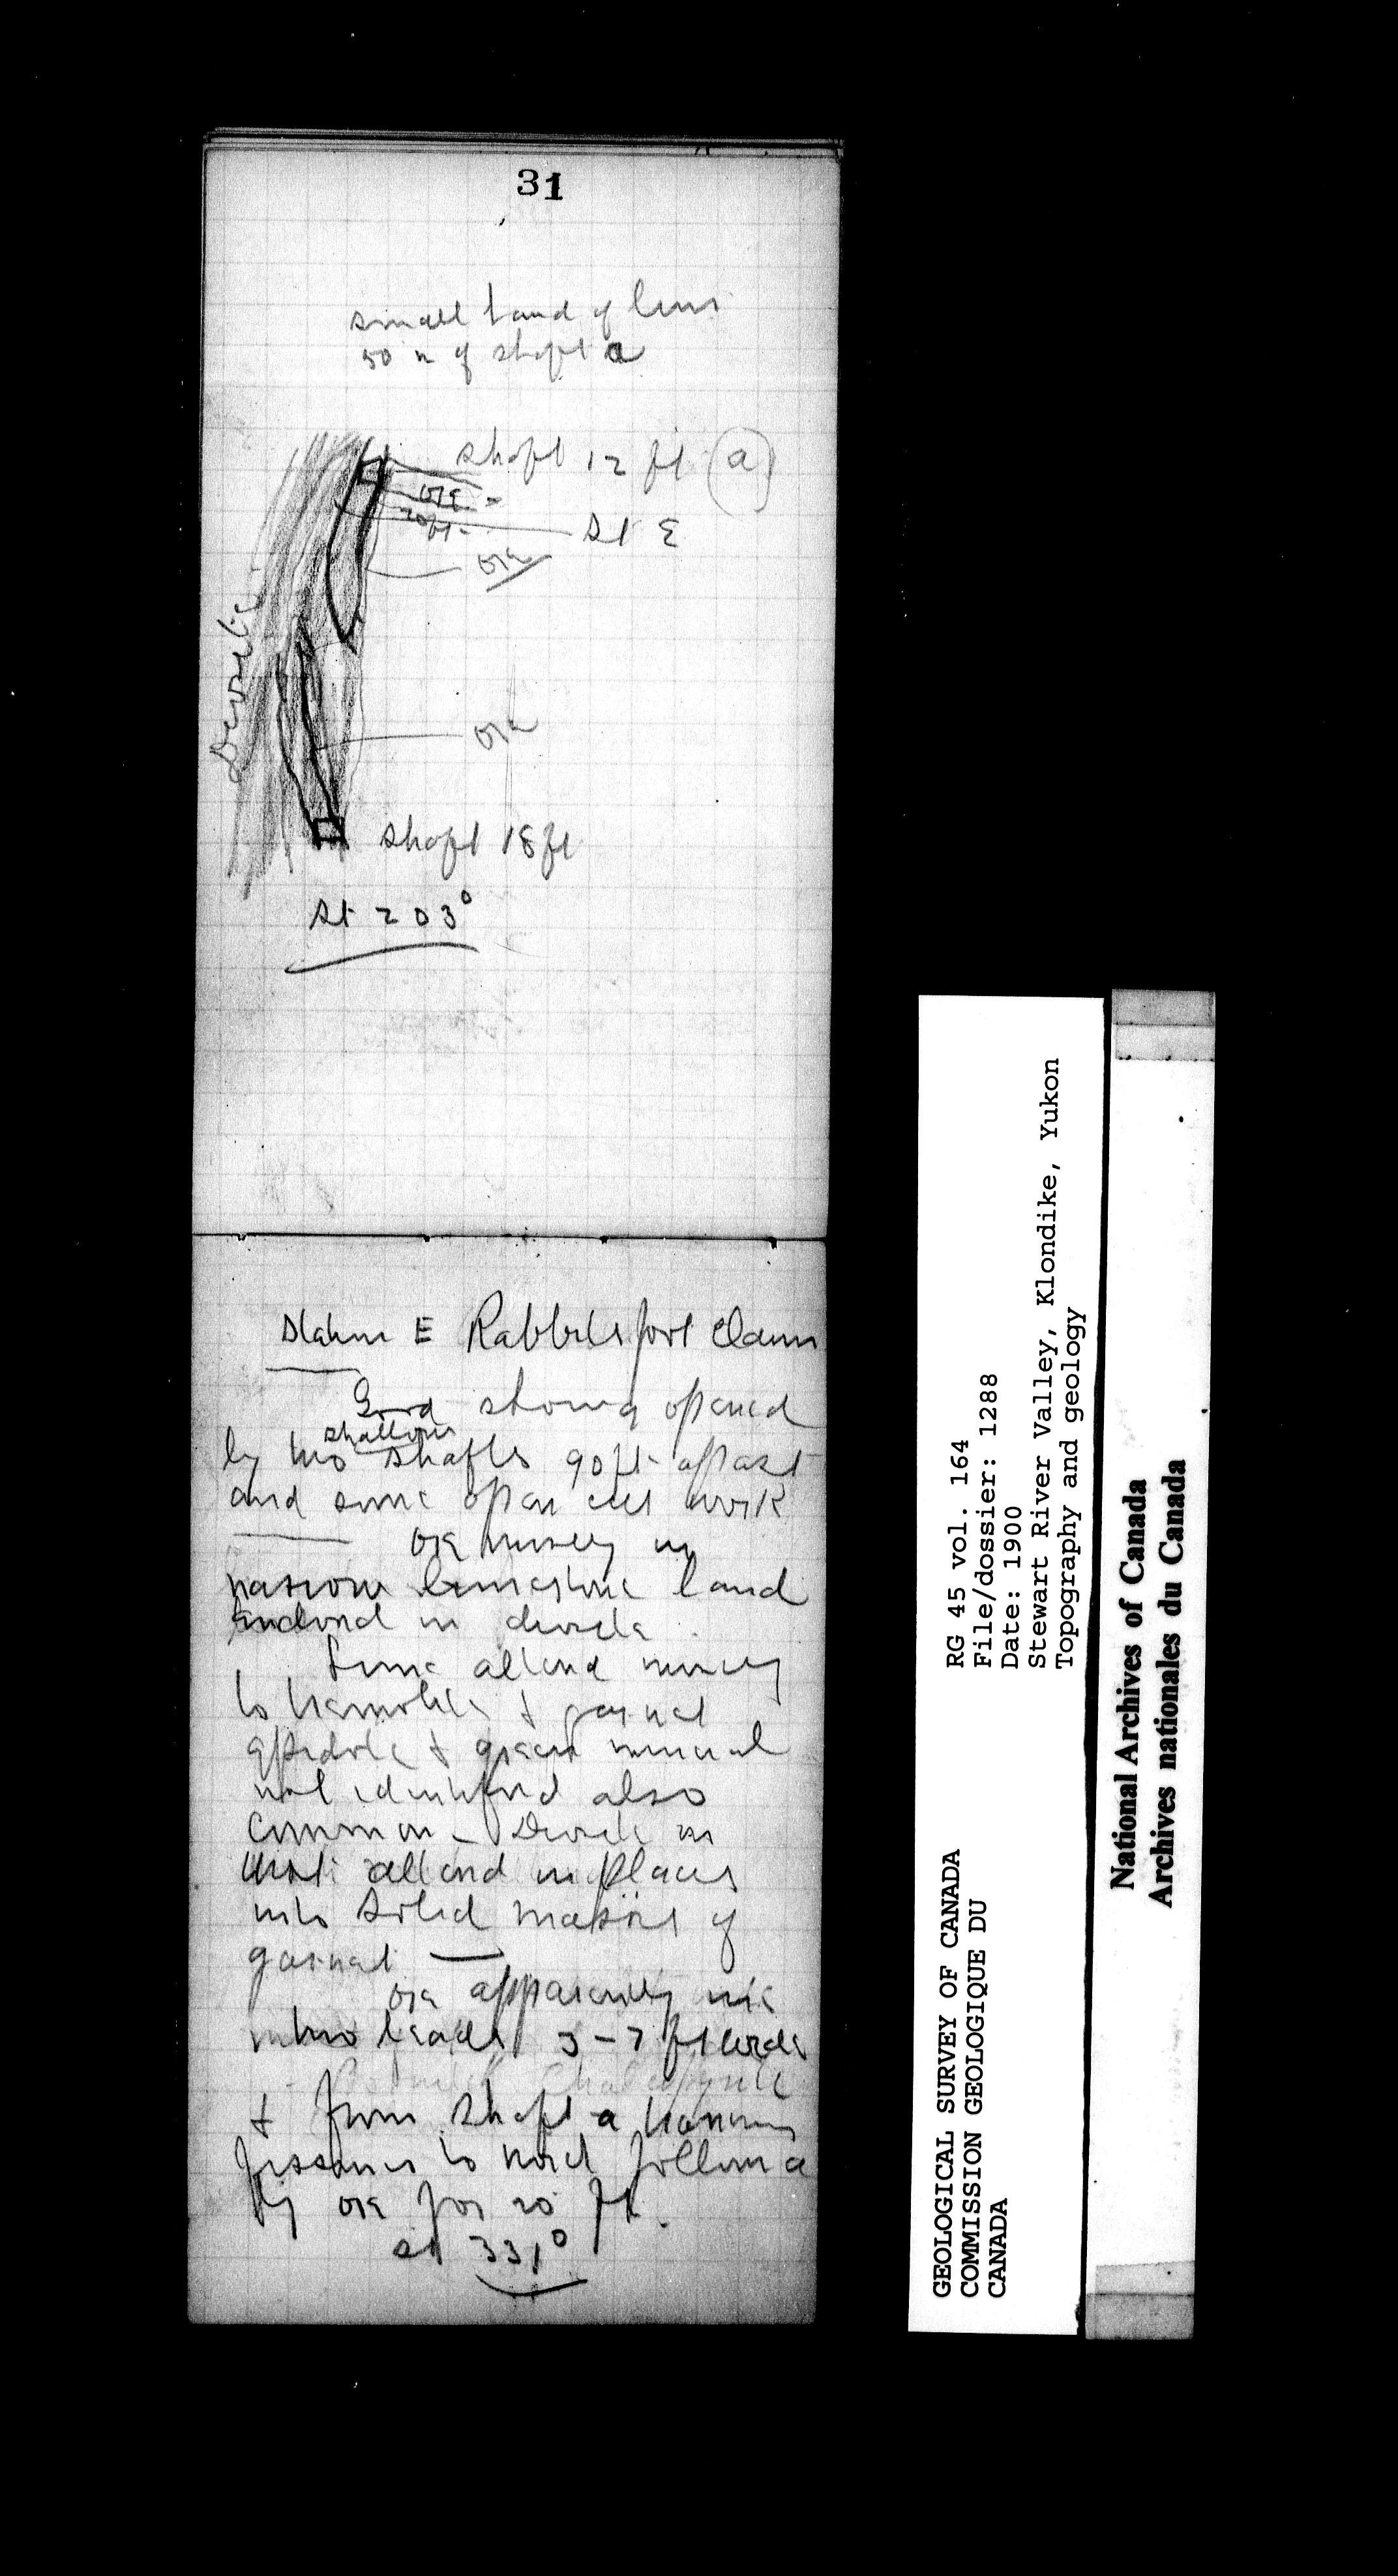 31
small band of lime
50 n of shaft a
shaft 12 ft (a)
ore
20 ft
St E
ore
Diorite
ore
shaft 18 ft
St 203°
Station E Rabbits foot Claim
Good showing opened
shallow
by two shafts 90 ft apart
and some open cut work
ore mostly in
narrow limestone band
enclosed in diorite
Lime altered mostly
to tremolite & garnet
epidote & green mineral
not identified also
common - Diorite
altered in places
into solid masses of
garnet
ore apparently
two leads 3-7 ft wide
Chalcopyrite
& from shaft a
fissures to
by ore for 20 ft.
st 331°
GEOLOGICAL SURVEY OF CANADA
COMMISSION GEOLOGIQUE DU
CANADA
RG 45 vol. 164
File/dossier: 1288
Date: 1900
Stewart River Valley, Klondike, Yukon
Topography and geology
National Archives of Canada
Archives nationales du Canada